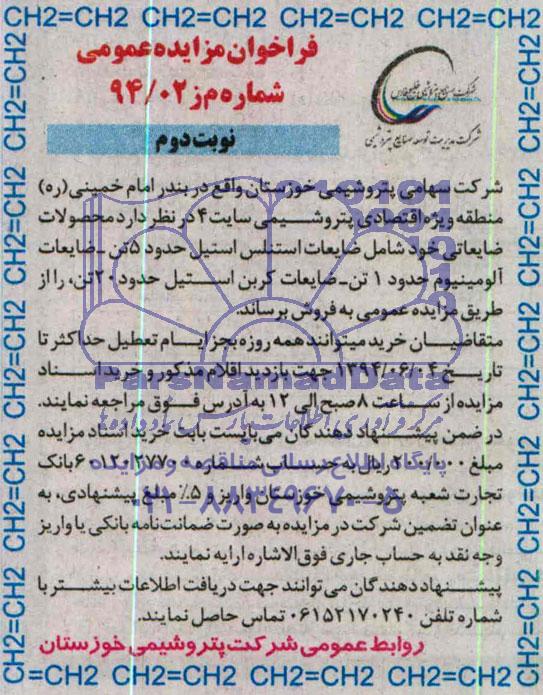 CH2=CH2 CH2=CH2 CH2=CH2 CH2=CH2 CH2=CH2
شرکت صنایع پتروشیمی خلیج فارس
شرکت مدیریت توسعه صنایع پتروشیمی
فراخوان مزایده عمومی
شماره م ز ۹۴/۰۲
نوبت دوم
شرکت سهامی پتروشیمی خوزستان واقع در بندر امام خمینی(ره)
منطقه ویژه اقتصادی پتروشیمی سایت ۴ در نظر دارد محصولات
ضایعاتی خود شامل ضایعات استنلس استیل حدود ۵ تن ـ ضایعات
آلومینیوم حدود ۱ تن ـ ضایعات کربن استیل حدود ۲۰ تن، را از
طریق مزایده عمومی به فروش برساند.
متقاضیان خرید میتوانند همه روزه بجز ایام تعطیل حداکثر تا
تاریخ ۱۳۹۴/۰۶/۰۴ جهت بازدید اقلام مذکور و خرید اسناد
مزایده از ساعت ۸ صبح الی ۱۲ به آدرس فوق مراجعه نمایند.
در ضمن پیشنهاد دهندگان می بایست بابت خرید اسناد مزایده
مبلغ ریال به حساب شماره بانک
تجارت شعبه پتروشیمی خوزستان واریز و ۵٪ مبلغ پیشنهادی، به
عنوان تضمین شرکت در مزایده به صورت ضمانت نامه بانکی یا واریز
وجه نقد به حساب جاری فوق الاشاره ارایه نمایند.
پیشنهاد دهندگان می توانند جهت دریافت اطلاعات بیشتر با
شماره تلفن ۰۶۱۵۲۱۷۰۲۴۰ تماس حاصل نمایند.
روابط عمومی شرکت پتروشیمی خوزستان
C=CH2 CH2=CH2 CH2=CH2 CH2=CH2 CH2=CH2
ParsNamadData
پایگاه اطلاع رسانی مناقصه و مزایده
۰۲۱-۸۸۳۴۹۶۷۰-۵